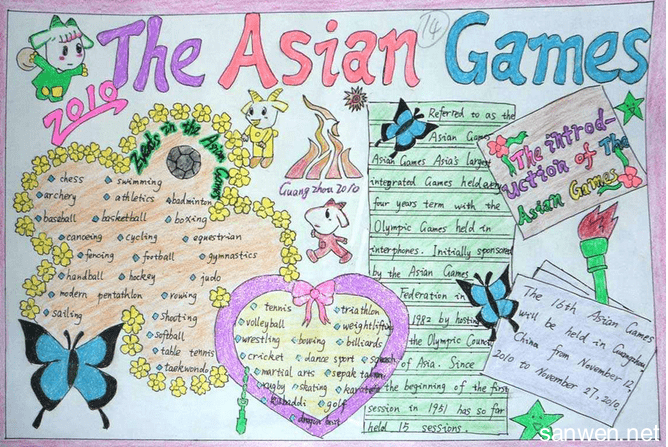 14
The Asian Games
2010
in the Asian Games
chess swimming
archery athletics badminton
baseball basketball boxing
canoeing cycling equestrian
fencing football gymnastics
handball hockey judo
modern pentathlon rowing
sailing shooting
softball
table tennis
taekwondo
Guangzhou 2010
tennis triathlon
volleyball weightlifting
wrestling bowing billiards
cricket dance sport
martial arts sepak
rugby skating karate
kabaddi golf
dragon boat
Referred to as the
Asian Games
Asian Games Asia's largest
integrated Games held every
four years term with the
Olympic Games held in
interphones. Initially sponsored
by the Asian Games
Federation in
1982 by hosting
the Olympic Council
of Asia. Since
the beginning of the first
session in 1951 has so far
held 15 sessions.
The introd-
uction of The
Asian Games
The 16th Asian Games
will be held in Guangzhou
China from November 12,
2010 to November 27, 2010
sanwen.net